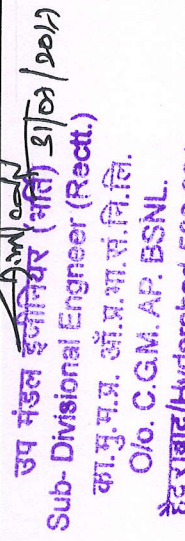 31/07/2017
उप मंडल इंजीनियर (भर्ती)
Sub- Divisional Engneer (Rectt.)
का.मु.म.प्र. ऑ.प्र.भा.सं.नि.लि.
O/o. C.G.M. AP. BSNL.
हैदराबाद/Hyderabad